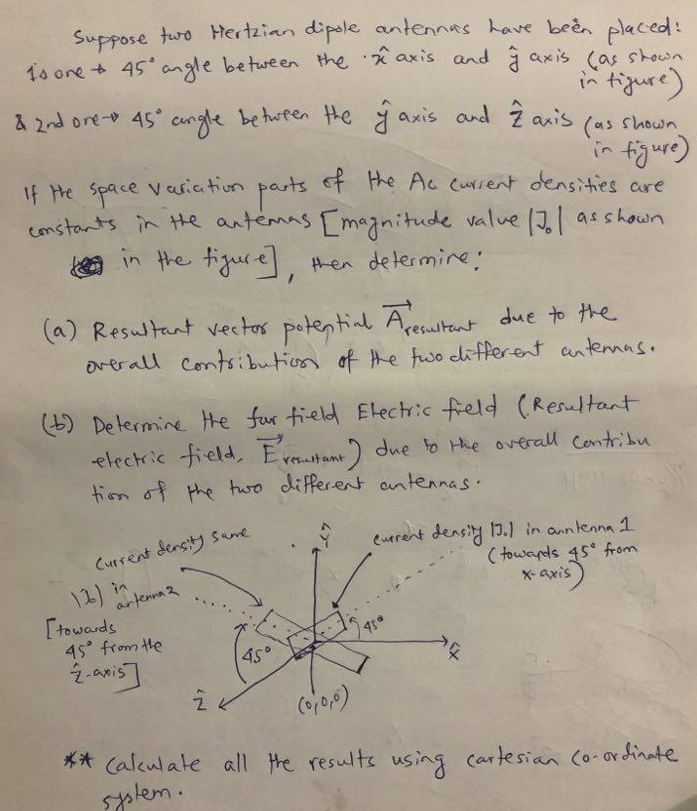 Suppose two Hertzian dipole antennas have been placed:
1s one → 45° angle between the x̂ axis and ŷ axis (as shown
in figure)
& 2nd one → 45° angle between the ŷ axis and ẑ axis (as shown
in figure)
If the space variation parts of the Ac current densities are
constants in the antennas [magnitude value |J₀| as shown
in the figure], then determine:
(a) Resultant vector potential A⃗resultant due to the
overall contribution of the two different antennas.
(b) Determine the far field Electric field (Resultant
electric field, E⃗resultant) due to the overall contribu
tion of the two different antennas.
Current density same
|J₀| in
antenna 2
[towards
45° from the
ẑ-axis]
current density |J₀| in anntenna 1
(towards 45° from
x-axis)
Ŷ
45°
45°
X̂
Ẑ
(0,0,0)
** Calculate all the results using cartesian co-ordinate
system.